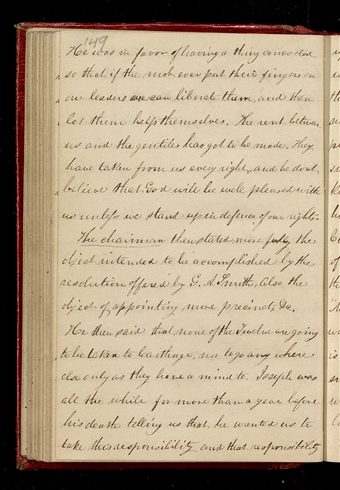 149
He was in favor of having a thing concocted
so that if the mob ever put their fingers on
our leaders we can liberate them, and then
let them help themselves. The rent between
us and the gentiles has got to be made. They
have taken from us every right, and he dont
believe that God will be well pleased with
us unless we stand up in defence of our rights.
The chairman then stated more fully, the
object intended to be accomplished by the
resolution offered by G. A. Smith, also the
object of appointing more precincts, &c.
He then said that none of the Twelve are going
to be taken to Carthage, nor to go any where
else only as they have a mind to. Joseph was
all the while for more than a year before
his death telling us that he wanted us to
take this responsibility and that responsibility